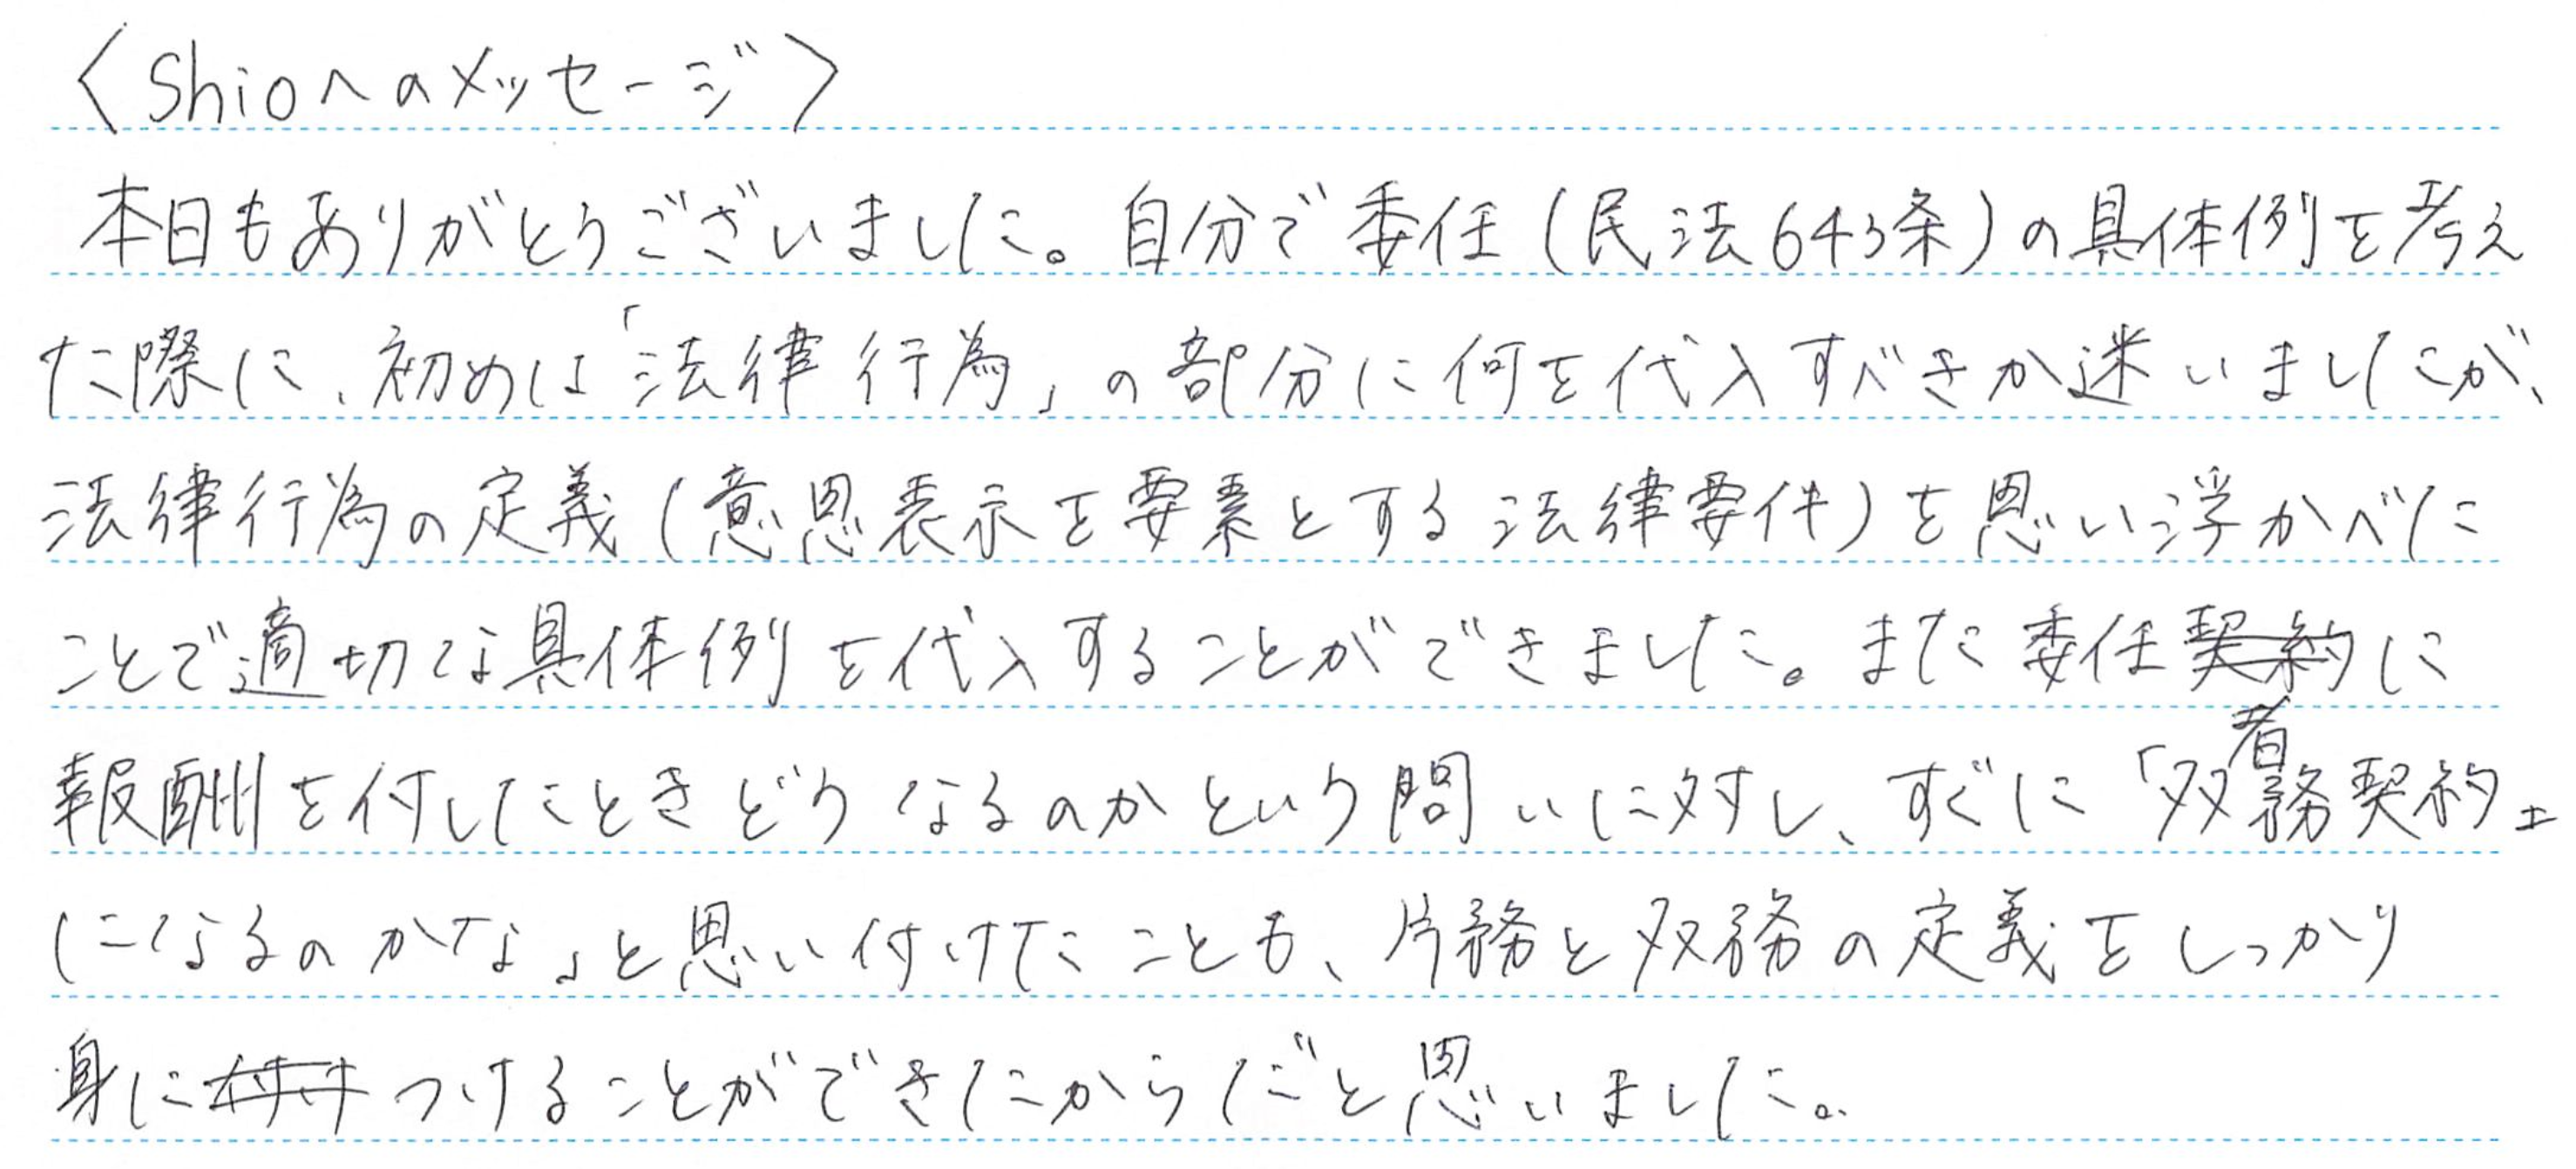 〈Shioへのメッセージ〉
本日もありがとうございました。自分で委任(民法643条)の具体例を考え
た際に、初めは「法律行為」の部分に何を代入すべきか迷いましたが、
法律行為の定義(意思表示を要素とする法律要件)を思い浮かべた
ことで適切な具体例を代入することができました。また委任契約に
報酬を付したときどうなるのかという問いに対し、すぐに「双務契約
になるのかな」と思い付けたことも、片務と双務の定義をしっかり
身に付け つけることができたからだと思いました。